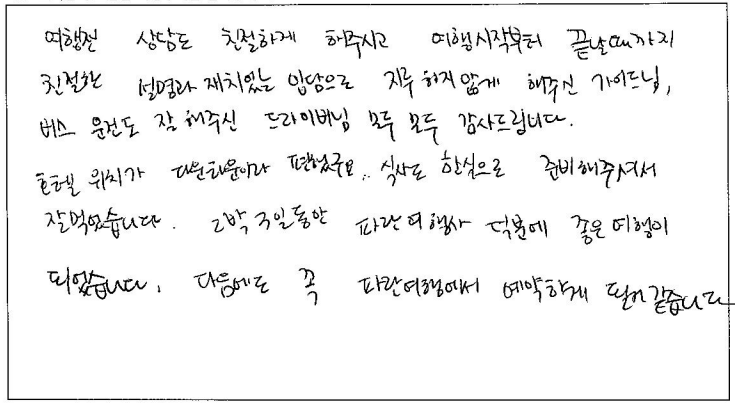 여행전 상담도 친절하게 해주시고 여행시작부터 끝날때까지
친절한 설명과 재치있는 입담으로 지루하지않게 해주신 가이드님,
버스 운전도 잘 해주신 드라이버님 모두 모두 감사드립니다.
호텔 위치가 다운타운이라 편했구요.. 식사도 한식으로 준비해주셔서
잘먹었습니다. 2박 3일동안 파란여행사 덕분에 좋은여행이
되었습니다. 다음에도 꼭 파란여행에서 예약하게 될거 같습니다